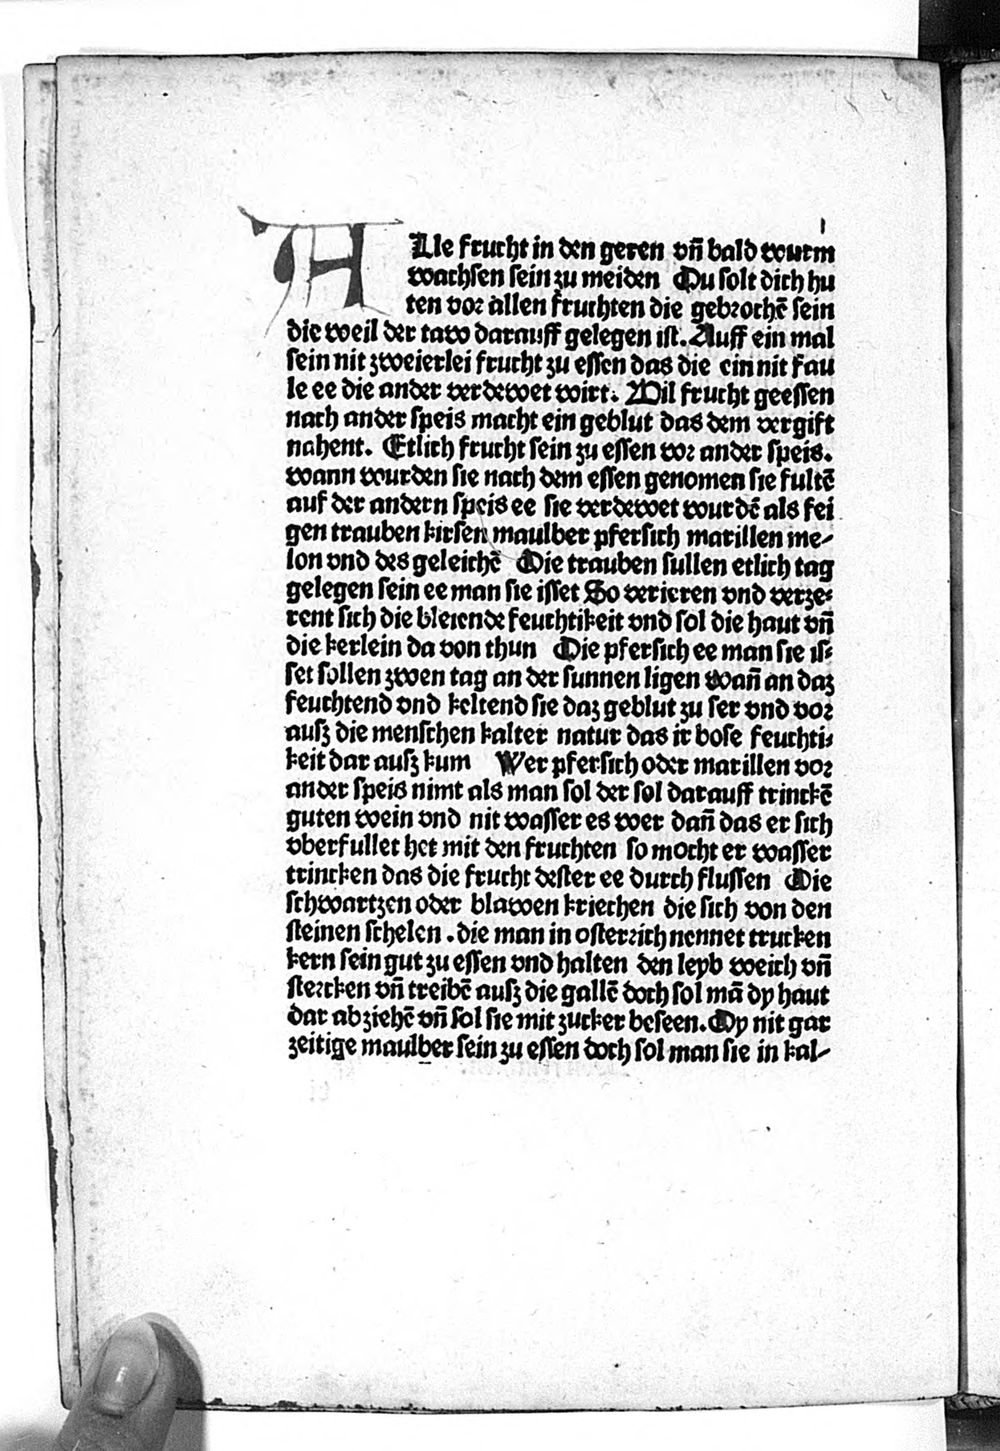 ALle frucht in den geren vn̄ bald wurm
wachsen sein zu meiden Du solt dich hu
ten vor allen fruchten die gebrochē sein
die weil der taw darauff gelegen ist. Auff ein mal
sein nit zweierlei frucht zu essen das die ein nit fau
le ee die ander verdewet wirt. Wil frucht geessen
nach ander speis macht ein geblut das dem vergift
nahent. Etlich frucht sein zu essen vor ander speis.
wann wurden sie nach dem essen genomen sie fultē
auf der andern speis ee sie verdewet wurdē als fei
gen trauben kirsen maulber pfersich marillen me-
lon vnd des geleichē Die trauben sullen etlich tag
gelegen sein ee man sie isset So verieren vnd verze-
rent sich die bleiende feuchtikeit vnd sol die haut vn̄
die kerlein da von thun Die pfersich ee man sie is-
set sollen zwen tag an der sunnen ligen wan̄ an daz
feuchtend vnd keltend sie daz geblut zu ser vnd vor
ausz die menschen kalter natur das ir bose feuchti-
keit dar ausz kum Wer pfersich oder marillen vor
ander speis nimt als man sol der sol darauff trinckē
guten wein vnd nit wasser es wer dan̄ das er sich
vberfullet het mit den fruchten so mocht er wasser
trincken das die frucht dester ee durch flussen Die
schwartzen oder blawen kriechen die sich von den
steinen schelen . die man in osterrich nennet trucken
kern sein gut zu essen vnd halten den leyb weich vn̄
stercken vn̄ treibē ausz die gallē doch sol mā dy haut
dar abziehē vn̄ sol sie mit zucker beseen. Dy nit gar
zeitige maulber sein zu essen doch sol man sie in kal-